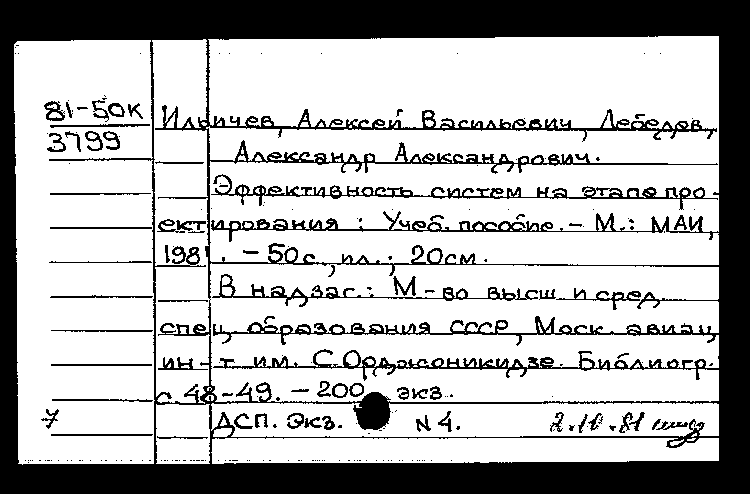 81-50к Ильичев, Алексей Васильевич, Лебедев,
3799 Александр Александрович.
Эффективность систем на этапе про-
ектирования : Учеб. пособие. – М.: МАИ,
1981. – 50 с., ил.; 20 см.
В надзаг.: М-во высш и сред.
спец. образования СССР, Моск. авиац.
ин-т им. С. Орджоникидзе. Библиогр.:
с. 48-49. – 200 экз.
7 ДСП. Экз. N 4. 2.10.81